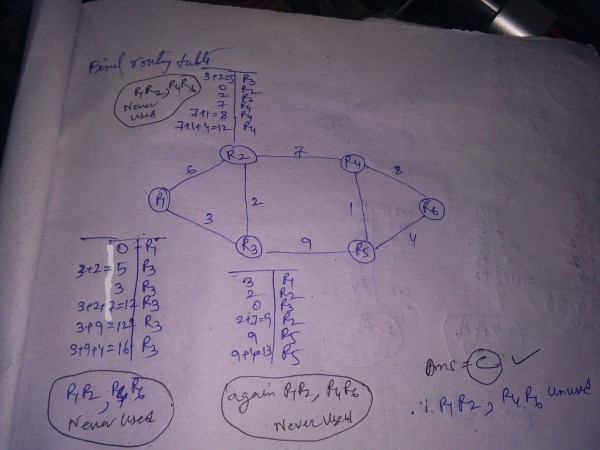 Final routing table
R1R2, R4R6
Never
used
3+2=5 R3
0 R2
2 R3
7 R4
7+1=8 R4
7+1+4=12 R4
R2 7 R4
6 8
R1 2 1 R6
3 4
R3 9 R5
0 R1
3+2=5 R3
3 R3
3+2+7=12 R3
3+9=12 R3
3+9+4=16 R3
3 R1
2 R2
0 R3
2+7=9 R2
9 R5
9+4=13 R5
R1R2, R4R6
Never used
again R1R2, R4R6
Never used
Ans = C ✓
∴ R1R2, R4R6 unused